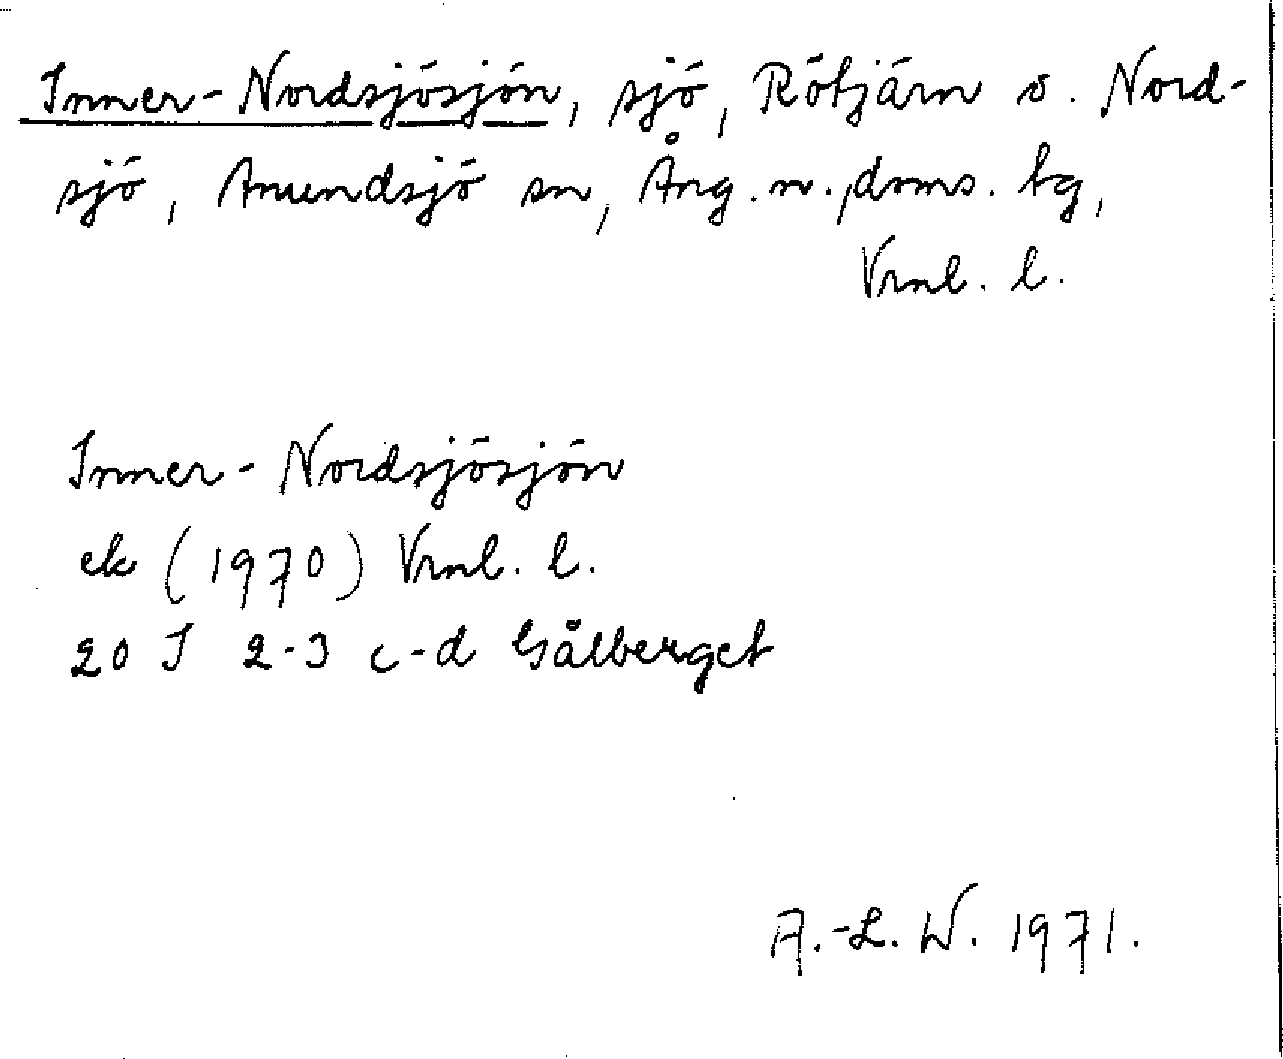 Inner-Nordsjösjön, sjö, Rötjärn o. Nord-
sjö, Anundsjö sn, Ång. n. doms. tg,
Vrnl. l.
Inner-Nordsjösjön
ek (1970) Vrnl. l.
20 I 2-3 c-d Gålberget
A.-L. W. 1971.